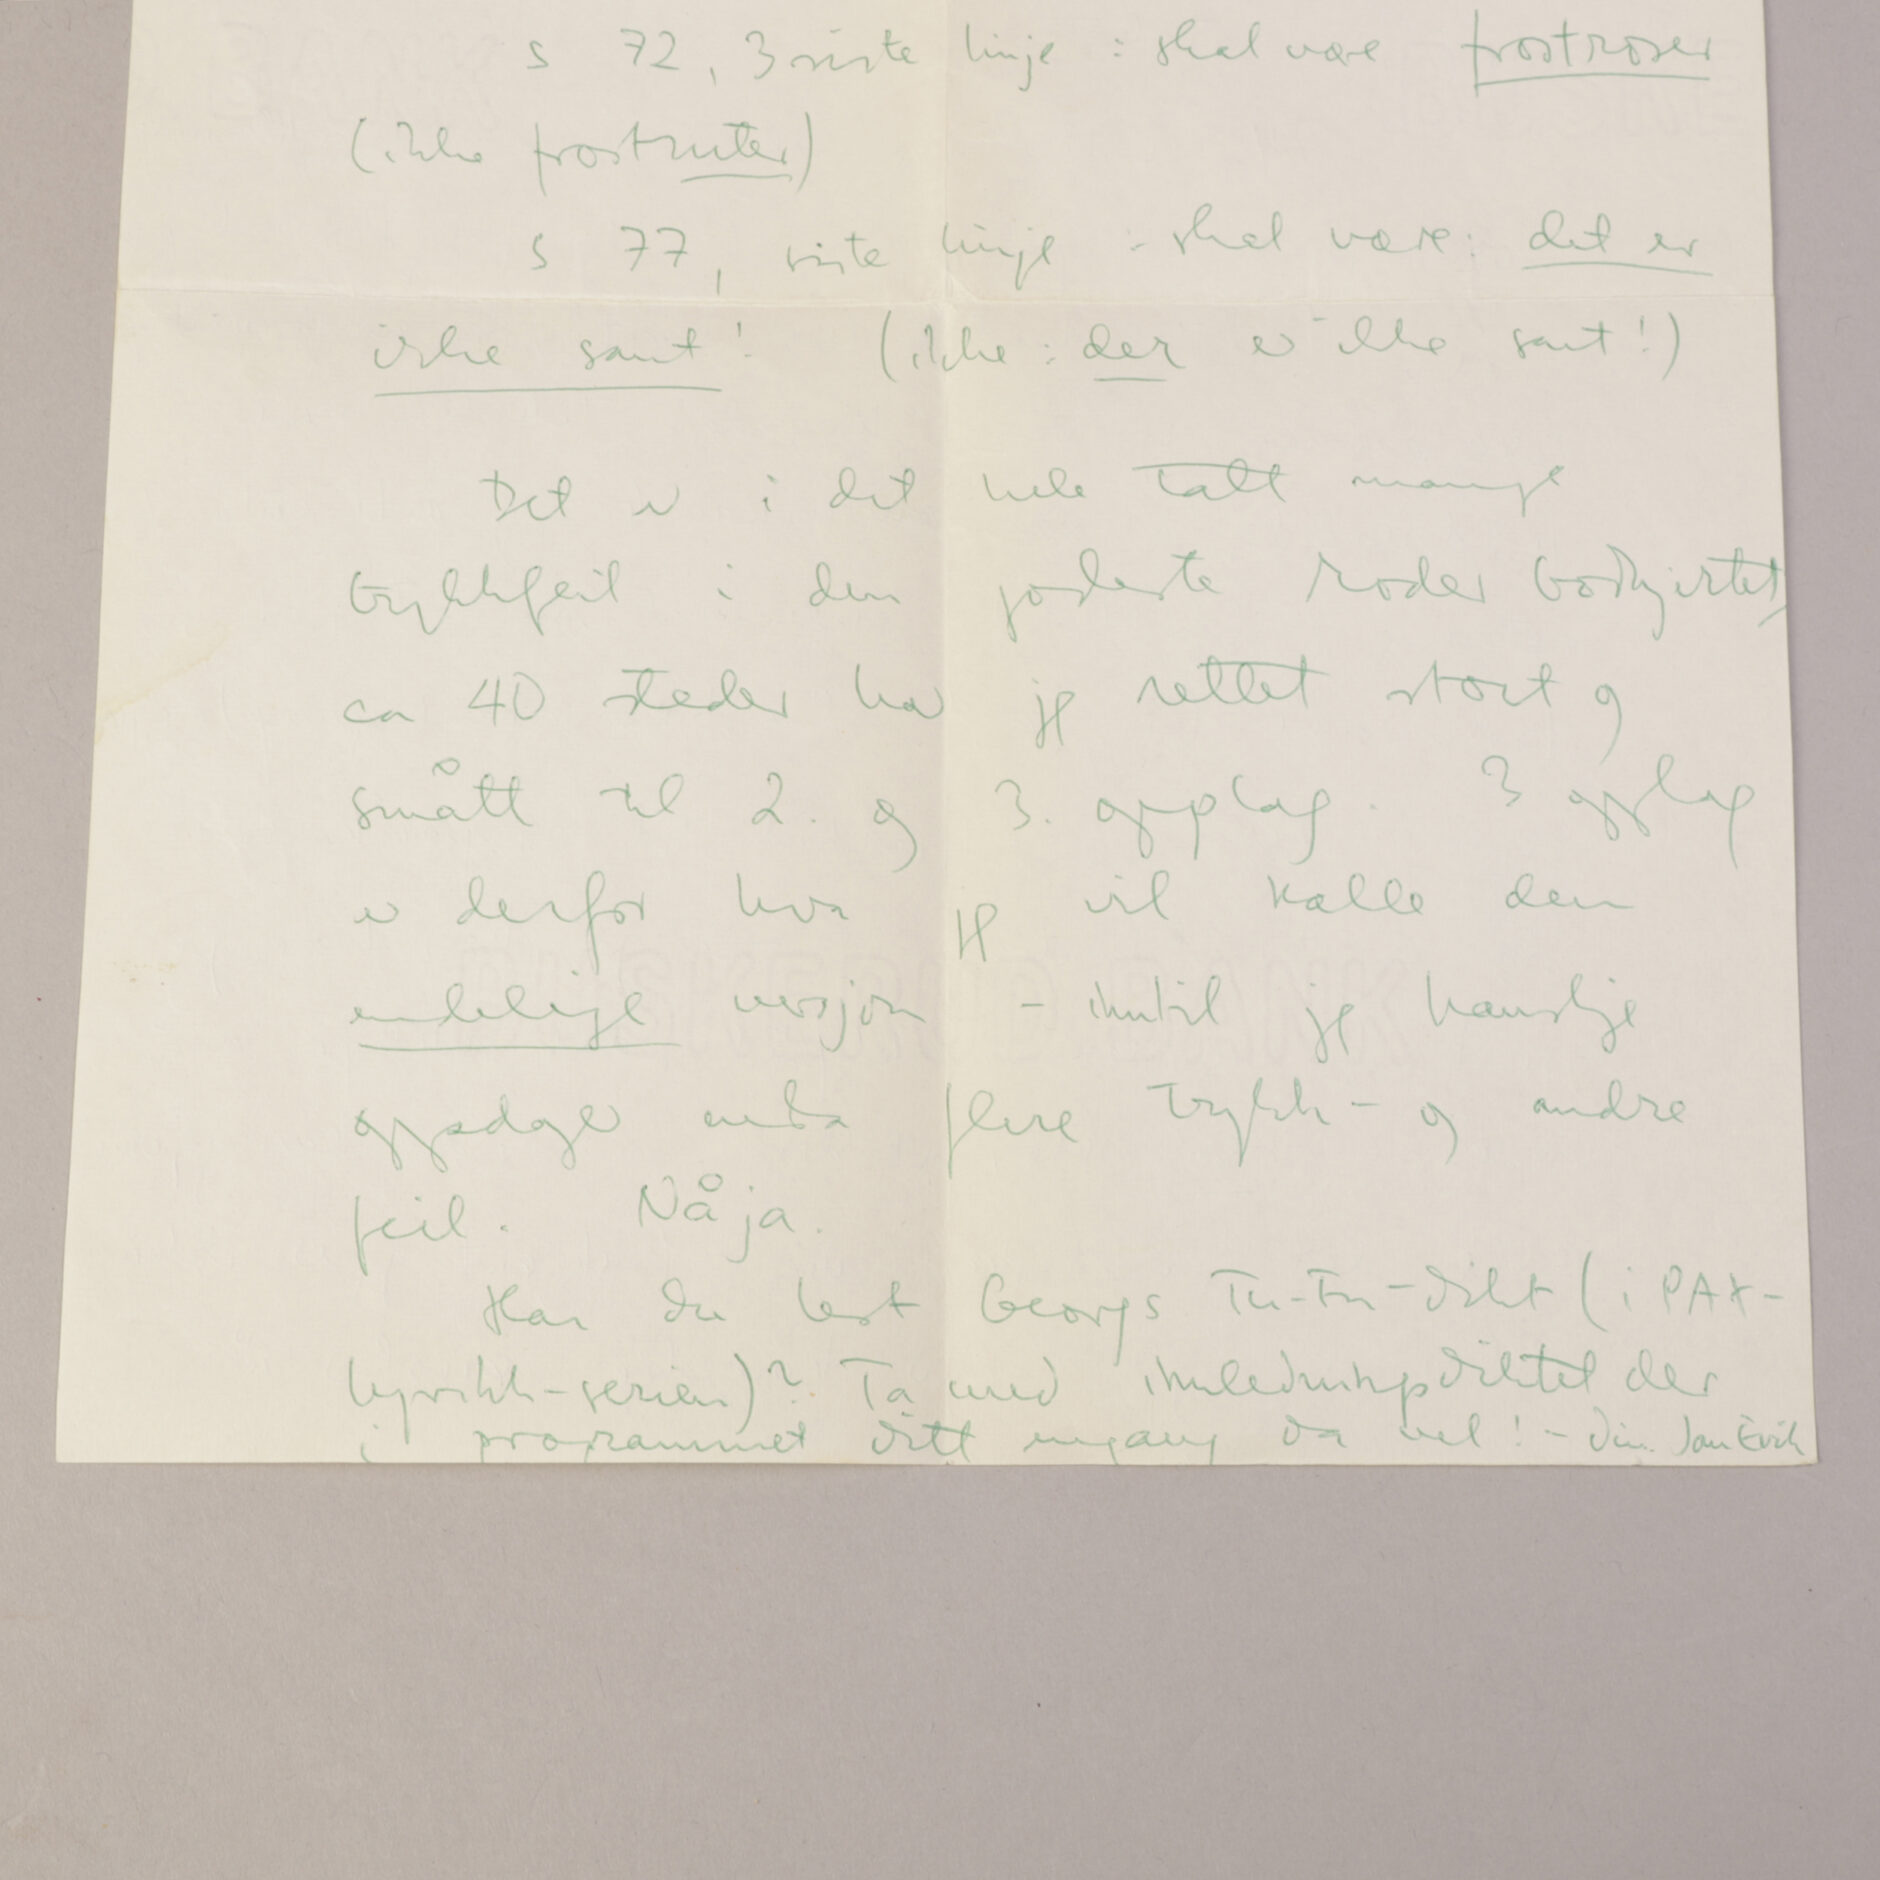 s 72, 3 siste linje : skal være frostroser
(ikke frostruter)
s 77, siste linje : skal være: det er
ikke sant! (ikke : der er ikke sant!)
Det er i det hele tatt mange
trykkfeil i den jordeste Moder Godhjertet,
ca 40 steder har jeg rettet stort og
smått til 2. og 3. opplag. 3 opplag
er derfor hva jeg vil kalle den
endelige versjon - inntil jeg kanskje
oppdager enda flere trykk- og andre
feil. Nåja.
Har du lest Georgs Tu-Fu-dikt (i PAX-
lyrikk-serien)? Ta med innledningsdiktet der
i programmet ditt engang da vel! - din Jan Erik